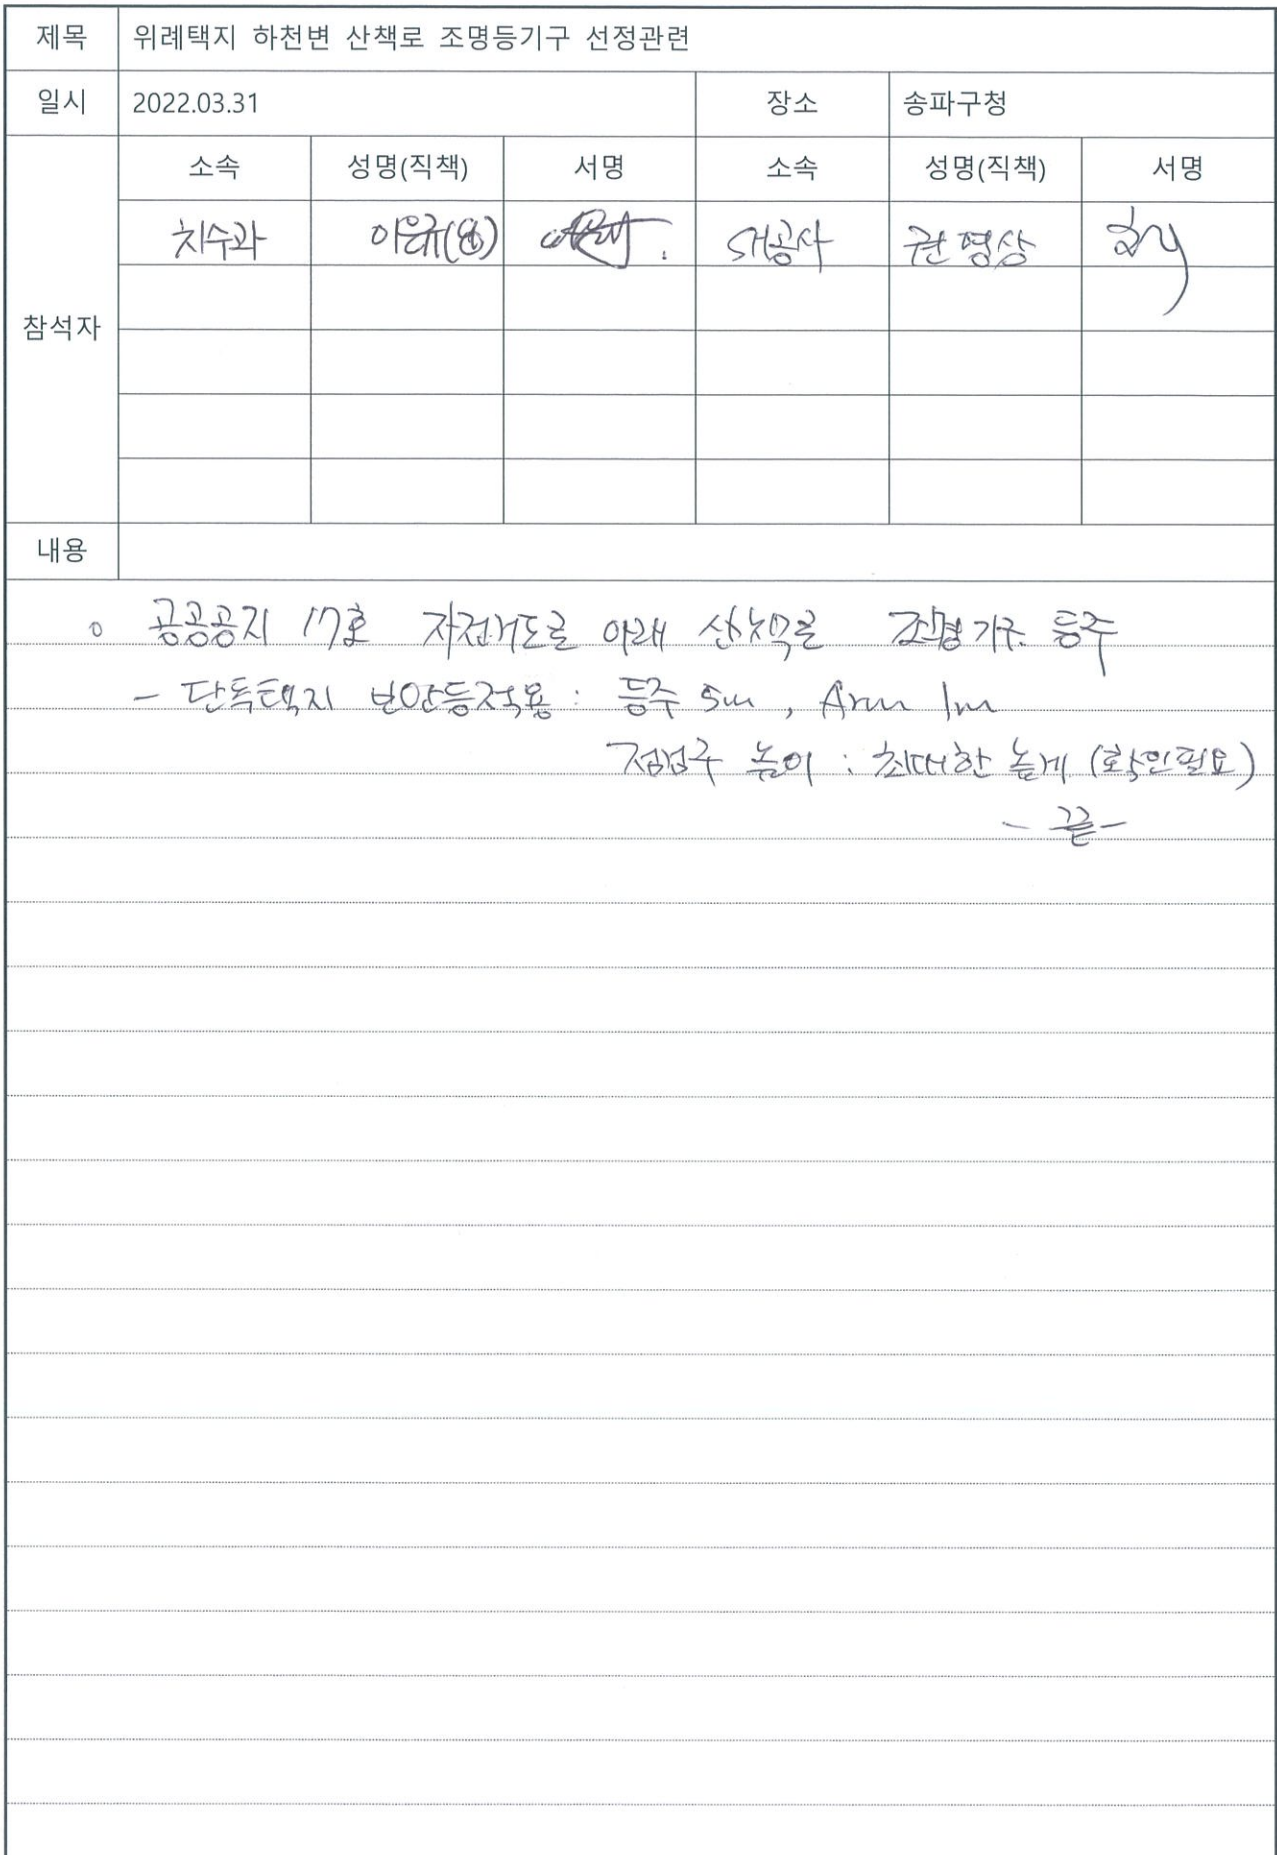 제목 위례택지 하천변 산책로 조명등기구 선정관련
일시 2022.03.31 장소 송파구청
참석자
소속 성명(직책) 서명 소속 성명(직책) 서명
치수과 SH공사 권영상
내용
o 공공공지 17호 자전거도로 아래 산책로 조명기구. 등주
- 단독택지 보안등적용 : 등주 5m , Arm 1m
점검구 높이 : 최대한 높게 (확인필요)
- 끝 -